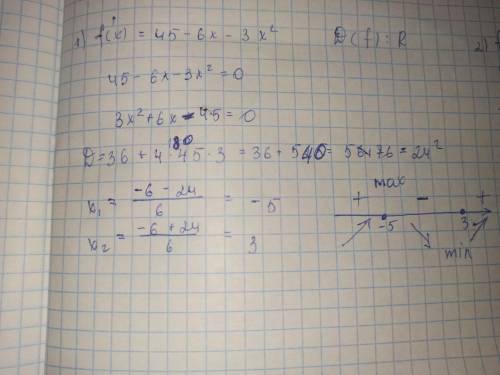 1) f'(x) = 45 - 6x - 3x² D(f): R 2) f
45 - 6x - 3x² = 0
3x² + 6x - 45 = 0
180
D = 36 + 4 · 45 · 3 = 36 + 540 = 576 = 24²
x₁ = (-6 - 24)/6 = -5
x₂ = (-6 + 24)/6 = 3
+ max - +
-5 3
min